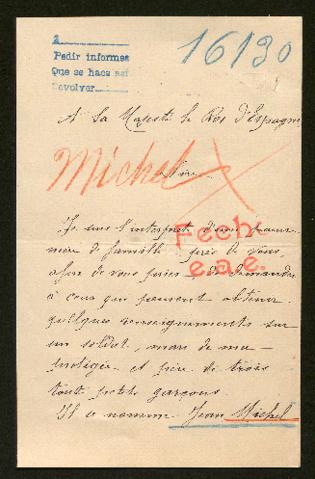 A
Pedir informes
Que se hace así
Devolver
16130
A Sa Majesté le Roi d'Espagne
Michel X
Sire
Je suis l'interprète d'une pauvre
mère de famille près de vous,
afin de vous prier, de demander
à ceux qui peuvent obtenir
Fech.
e.a.e.
quelques renseignements sur
un soldat, mari de ma
protégée et père de trois
tout petits garçons.
Il se nomme Jean Michel